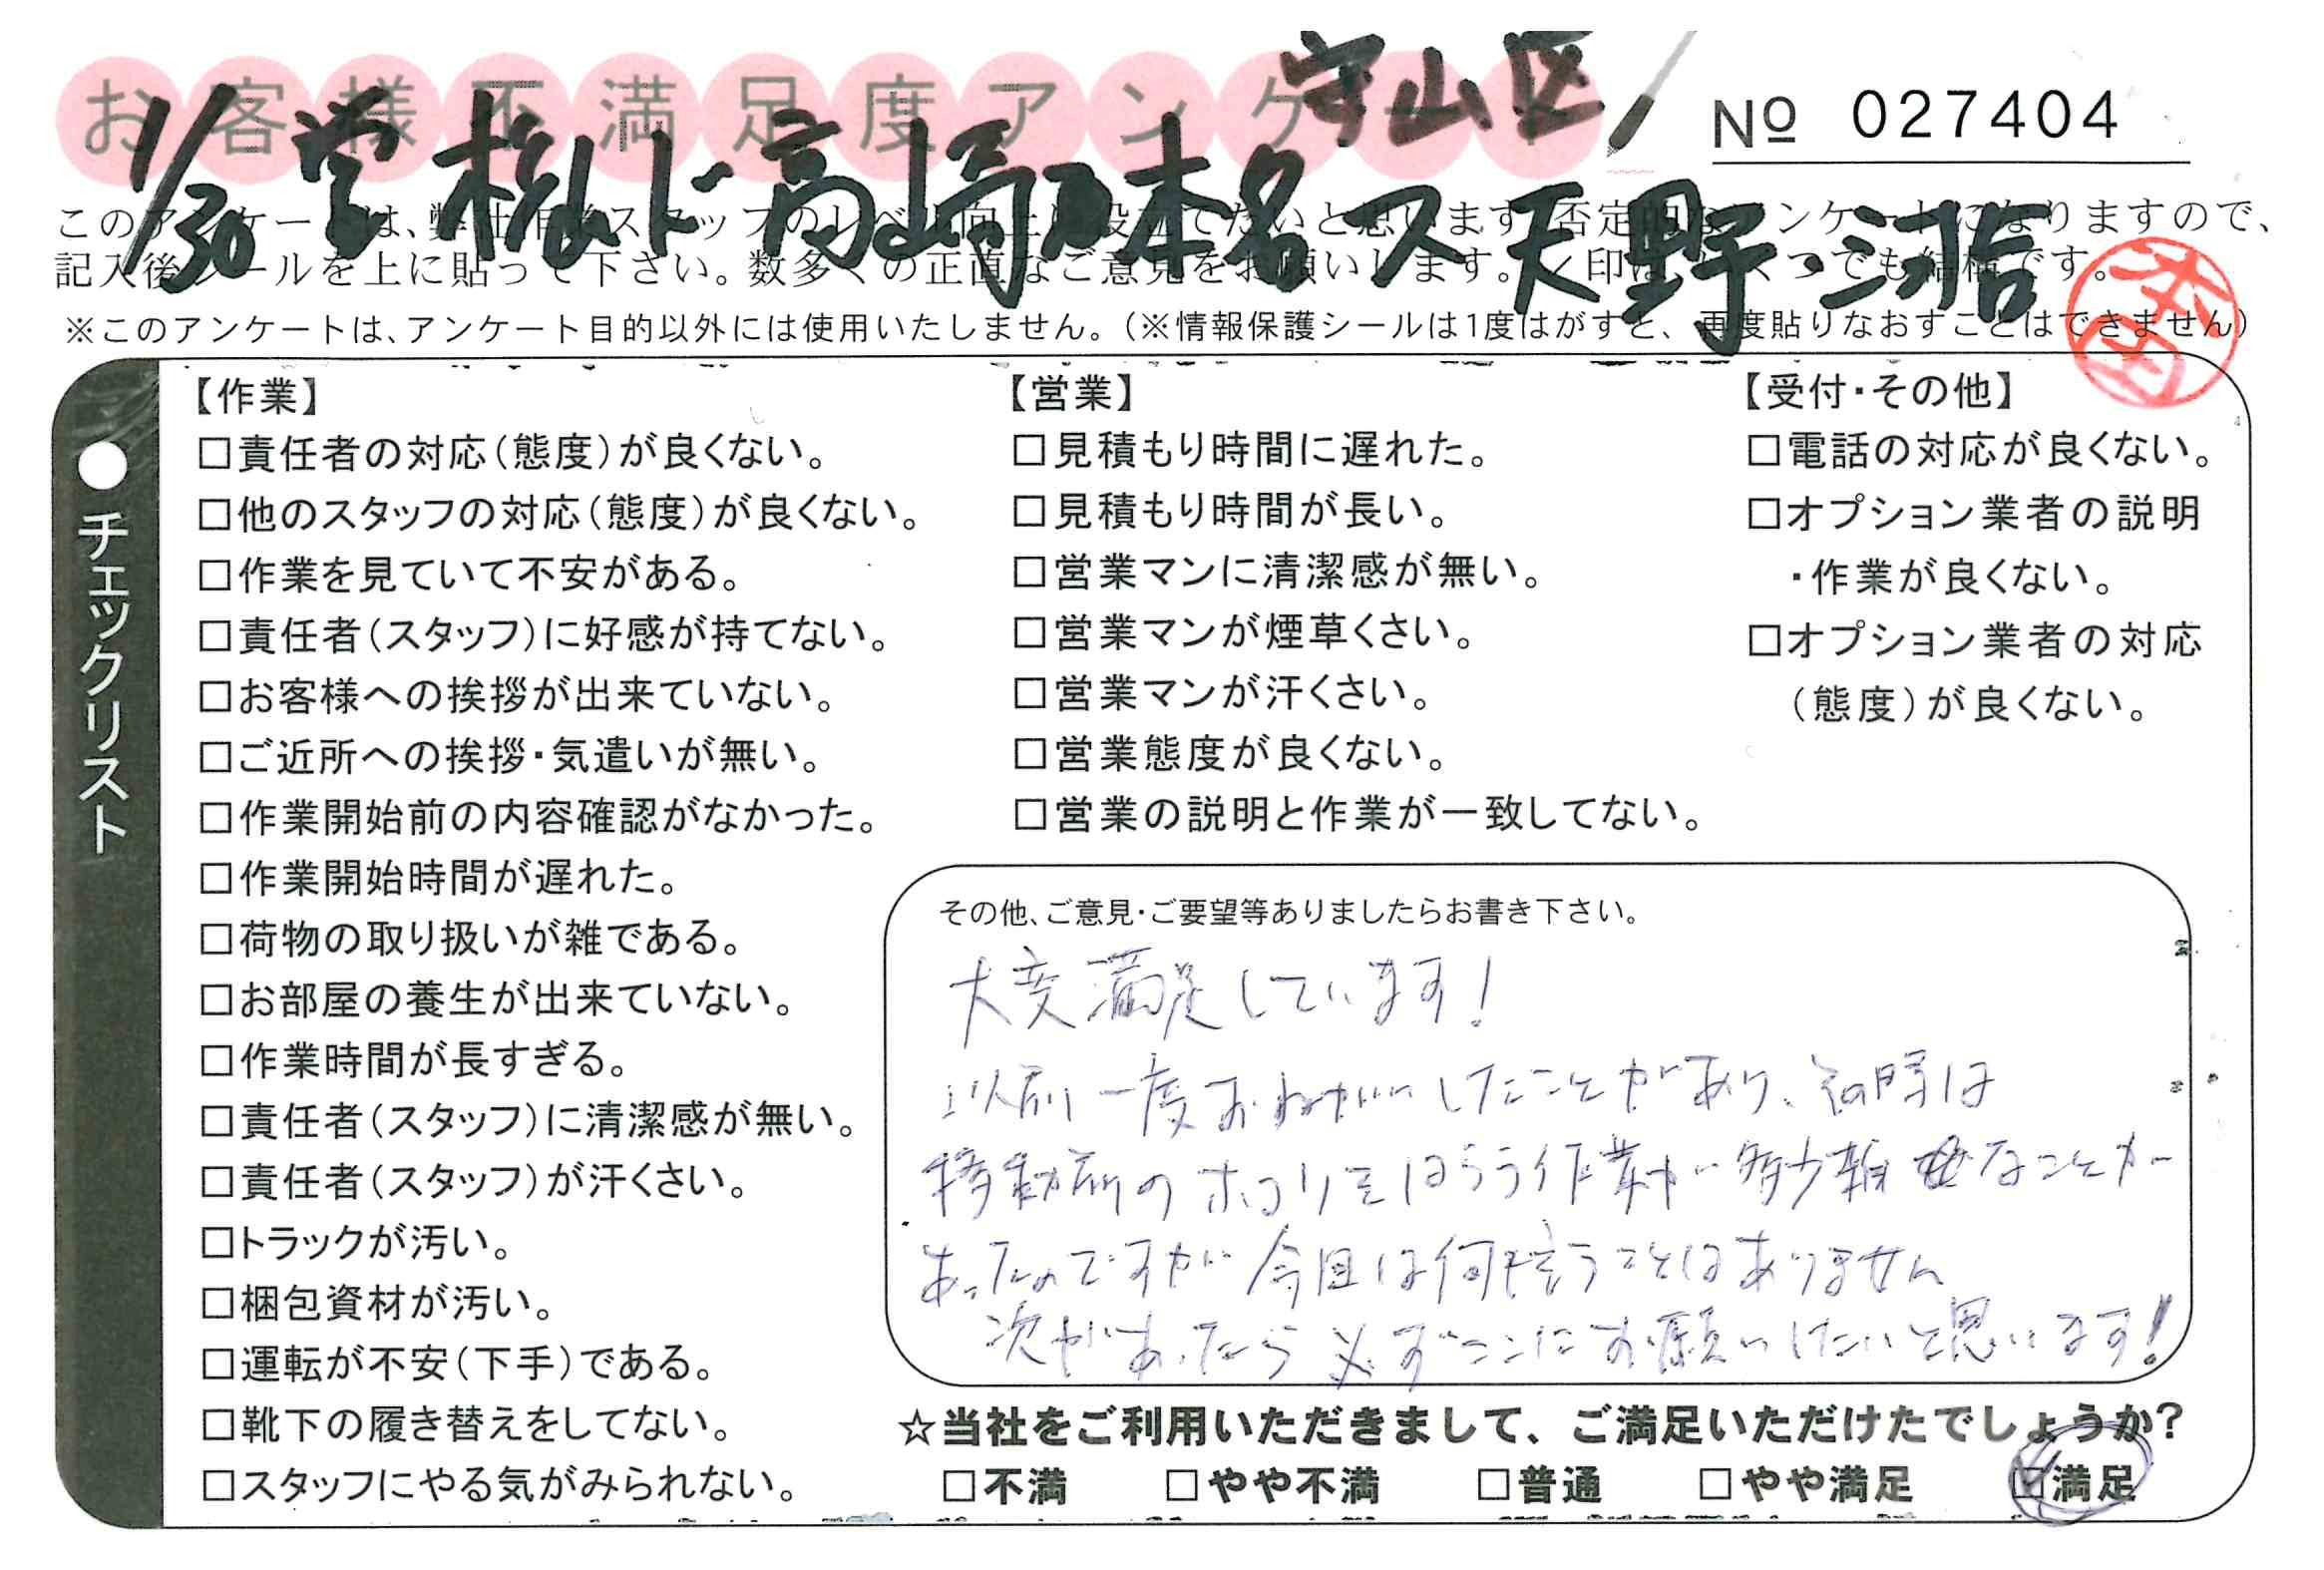 お客様不満足度アンケート
守山区
No 027404
1/30 営 松山 ド 高崎 本名 ス 天野・河合
このアンケートは、弊社
スタッフのレベル向上に役立てたいと思います。否定的なアンケートになりますので、
記入後シールを上に貼って下さい。数多くの正直なご意見をお願いします。✓印はいくつでも結構です。
※このアンケートは、アンケート目的以外には使用いたしません。(※情報保護シールは1度はがすと、再度貼りなおすことはできません)
●チェックリスト
【作業】
□責任者の対応(態度)が良くない。
□他のスタッフの対応(態度)が良くない。
□作業を見ていて不安がある。
□責任者(スタッフ)に好感が持てない。
□お客様への挨拶が出来ていない。
□ご近所への挨拶・気遣いが無い。
□作業開始前の内容確認がなかった。
□作業開始時間が遅れた。
□荷物の取り扱いが雑である。
□お部屋の養生が出来ていない。
□作業時間が長すぎる。
□責任者(スタッフ)に清潔感が無い。
□責任者(スタッフ)が汗くさい。
□トラックが汚い。
□梱包資材が汚い。
□運転が不安(下手)である。
□靴下の履き替えをしてない。
□スタッフにやる気がみられない。
【営業】
□見積もり時間に遅れた。
□見積もり時間が長い。
□営業マンに清潔感が無い。
□営業マンが煙草くさい。
□営業マンが汗くさい。
□営業態度が良くない。
□営業の説明と作業が一致してない。
【受付・その他】
□電話の対応が良くない。
□オプション業者の説明
・作業が良くない。
□オプション業者の対応
(態度)が良くない。
その他、ご意見・ご要望等ありましたらお書き下さい。
大変満足しています!
以前一度おねがいしたことがあり、その時は
移動前のホコリをはらう作業が多少雑なことが
あったのですが今回は何も言うことはありません
次があったら必ずここにお願いしたいと思います!
☆当社をご利用いただきまして、ご満足いただけたでしょうか?
□不満 □やや不満 □普通 □やや満足 ☑満足